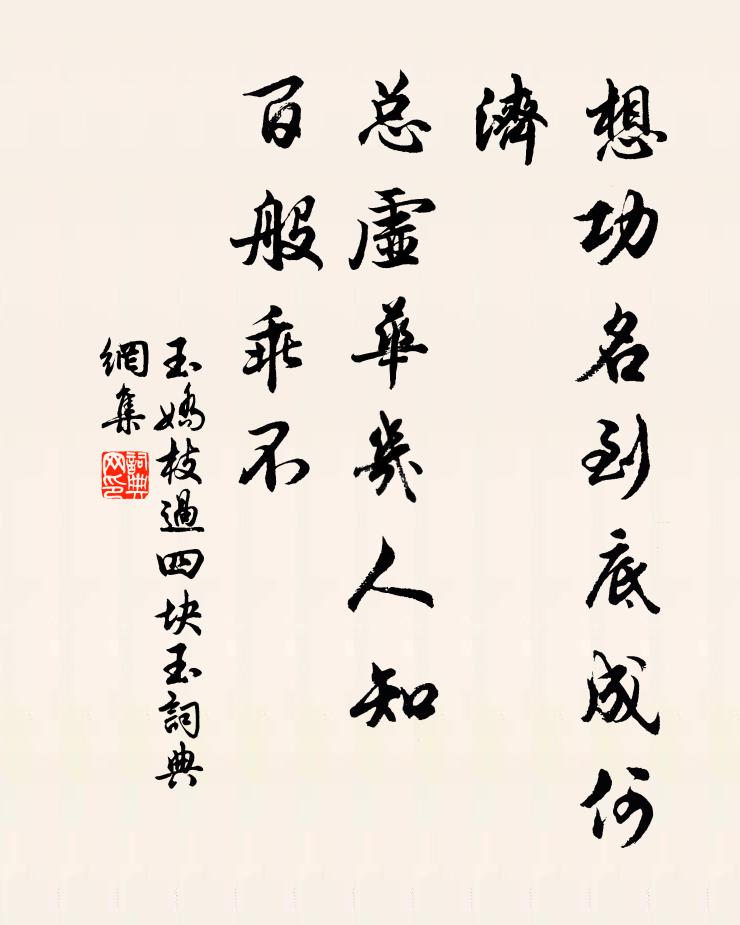 想功名到底成何
濟
总虛華幾人知
百般乖不
玉嬌枝過四块玉詞典
網集
詞典
网印